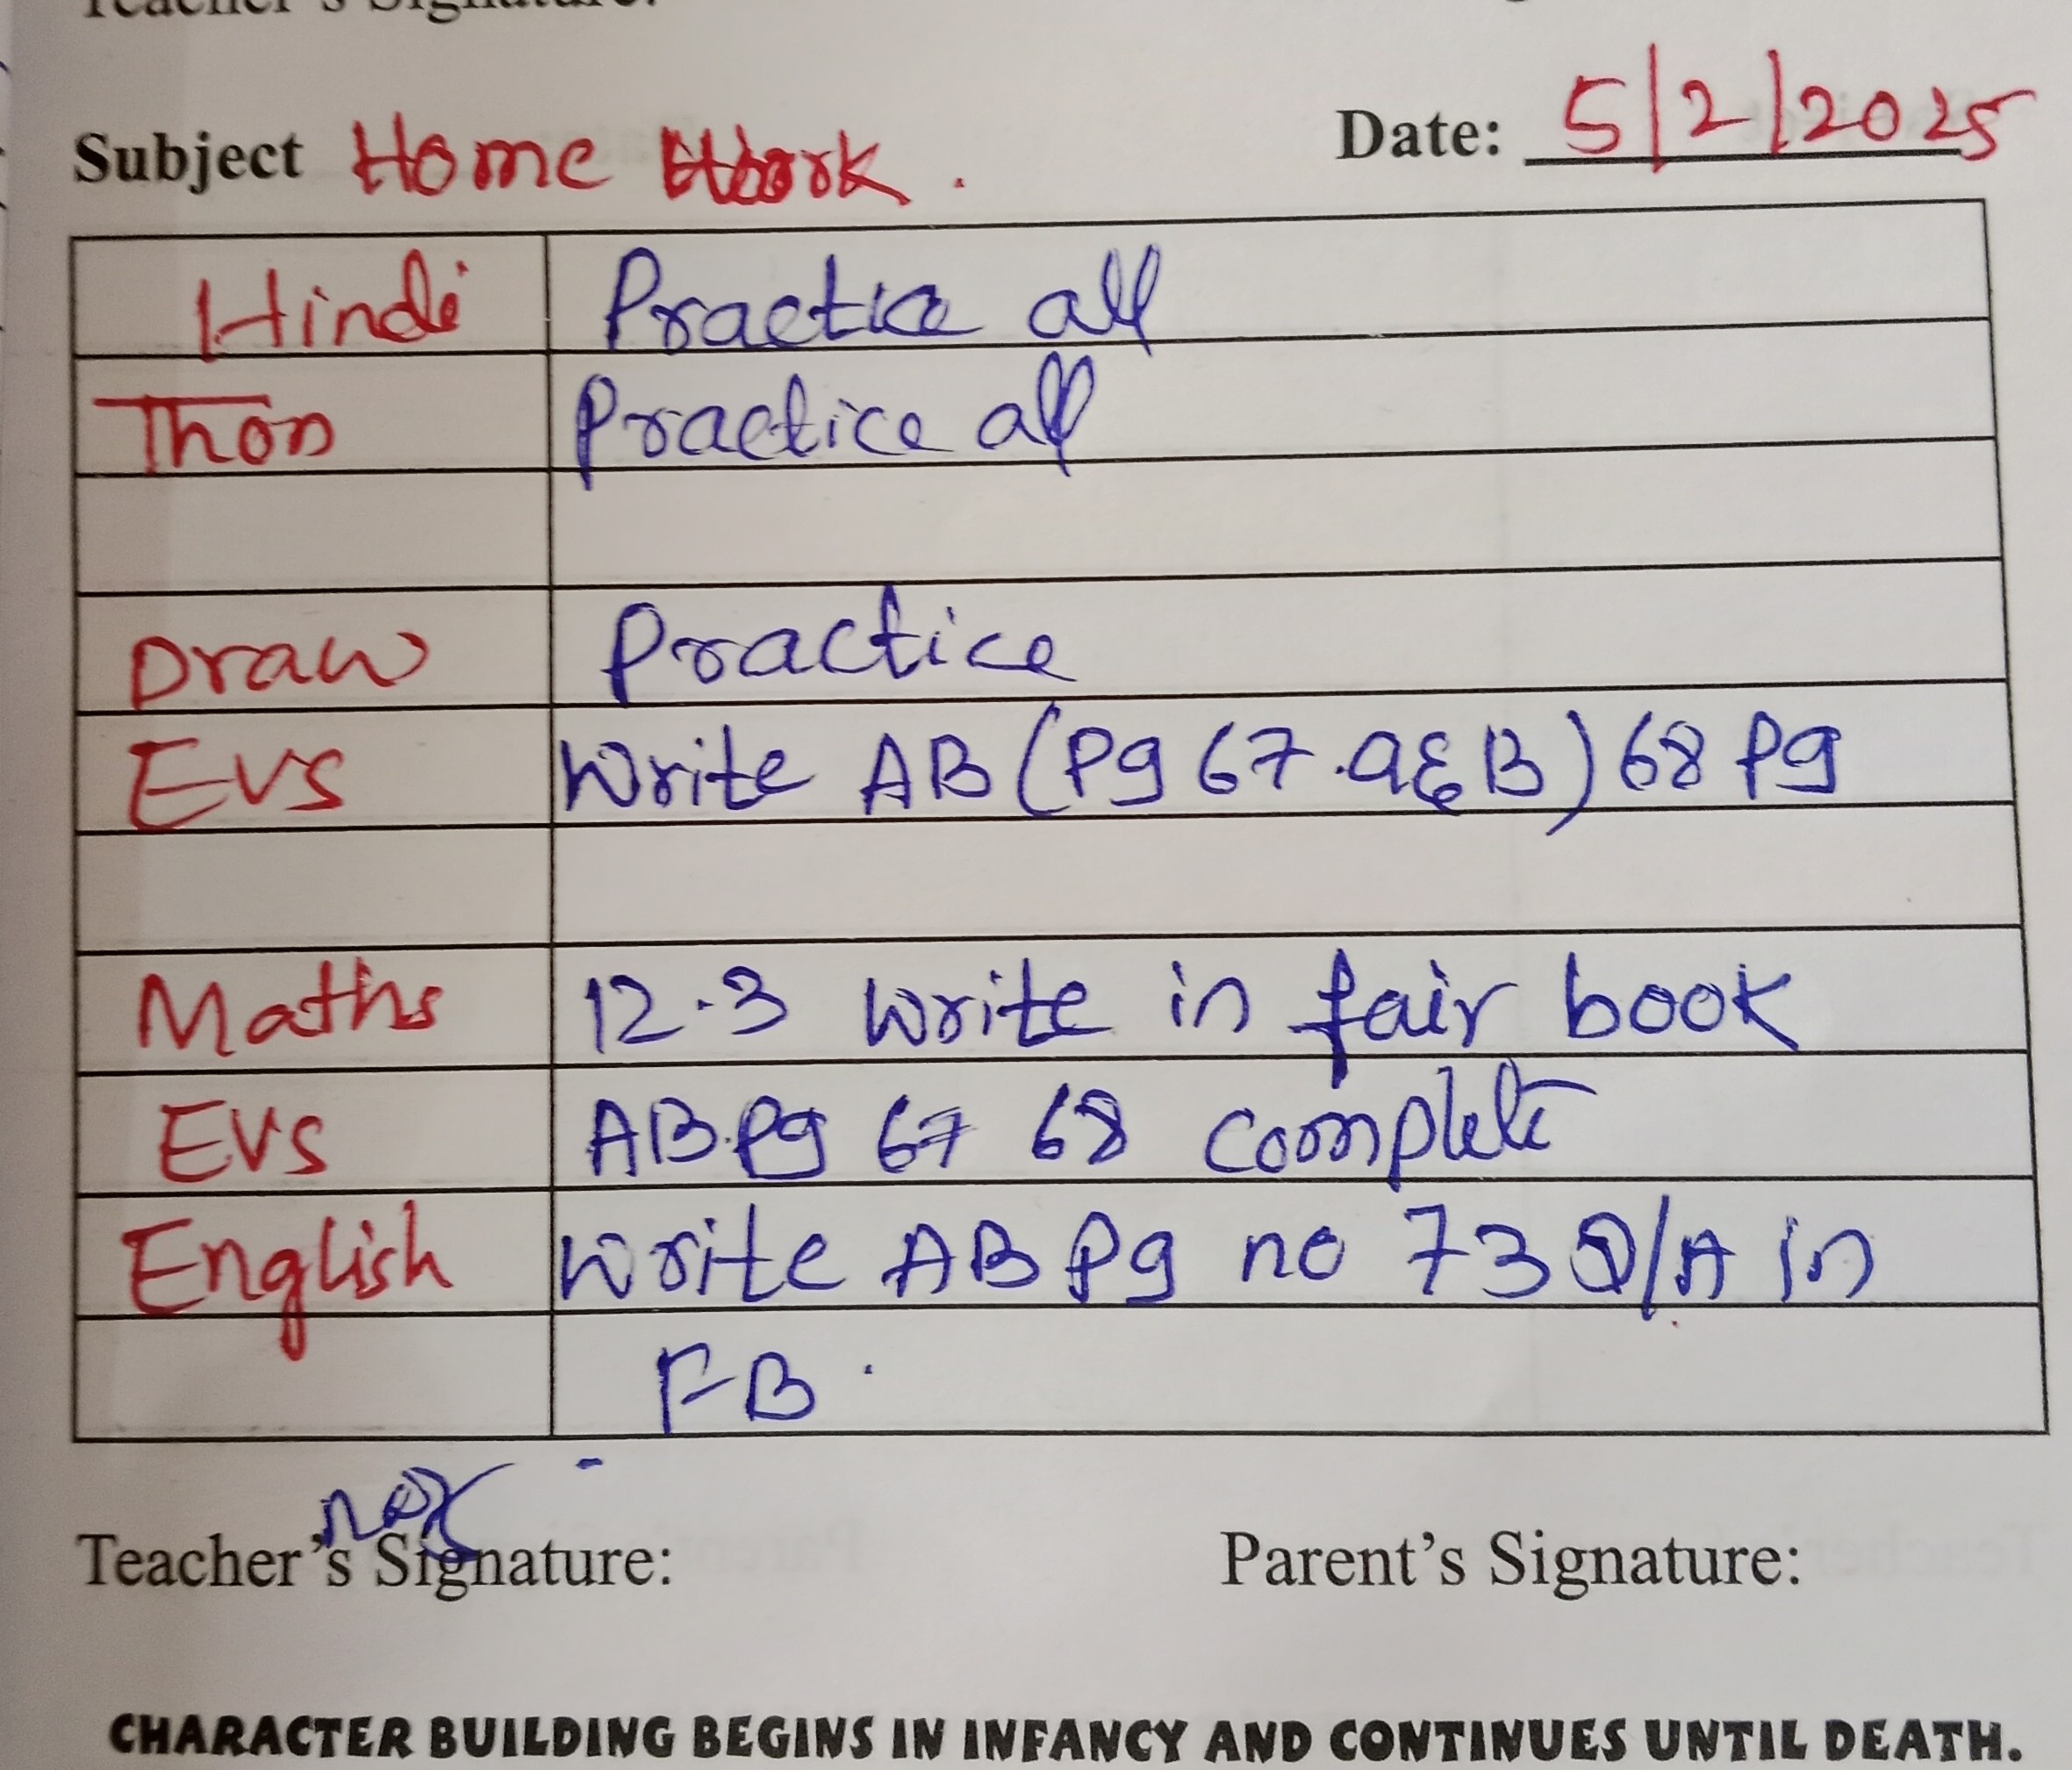 Teacher's Signature:
Subject Home Work. Date: 5/2/2025
Hindi Practice all
Thon Practice all
Draw Practice
EVS Write AB (Pg 67 .a&B) 68 Pg
Maths 12.3 write in fair book
EVS AB.Pg 67 68 complete
English Write AB Pg no 73 Q/A in
FB.
Teacher's Signature: Parent's Signature:
CHARACTER BUILDING BEGINS IN INFANCY AND CONTINUES UNTIL DEATH.